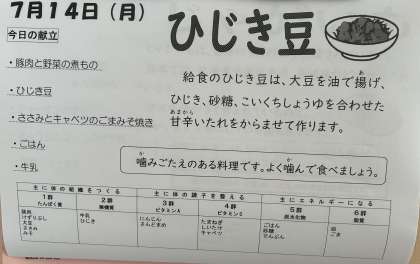 7月14日（月）
今日の献立
・豚肉と野菜の煮もの
・ひじき豆
・ささみとキャベツのごまみそ焼き
・ごはん
・牛乳
ひじき豆
給食のひじき豆は、大豆を油で揚げ、
ひじき、砂糖、こいくちしょうゆを合わせた
甘辛いたれをからませて作ります。
噛みごたえのある料理です。よく噛んで食べましょう。
主に体の組織をつくる 主に体の調子を整える 主にエネルギーになる
1群 2群 3群 4群 5群 6群
たんぱく質 無機質 ビタミンA ビタミンC 炭水化物 脂質
豚肉 牛乳 にんじん たまねぎ ごはん 油
けずりぶし ひじき さんどまめ しいたけ 砂糖 ごま
大豆 キャベツ でんぷん
ささみ
みそ